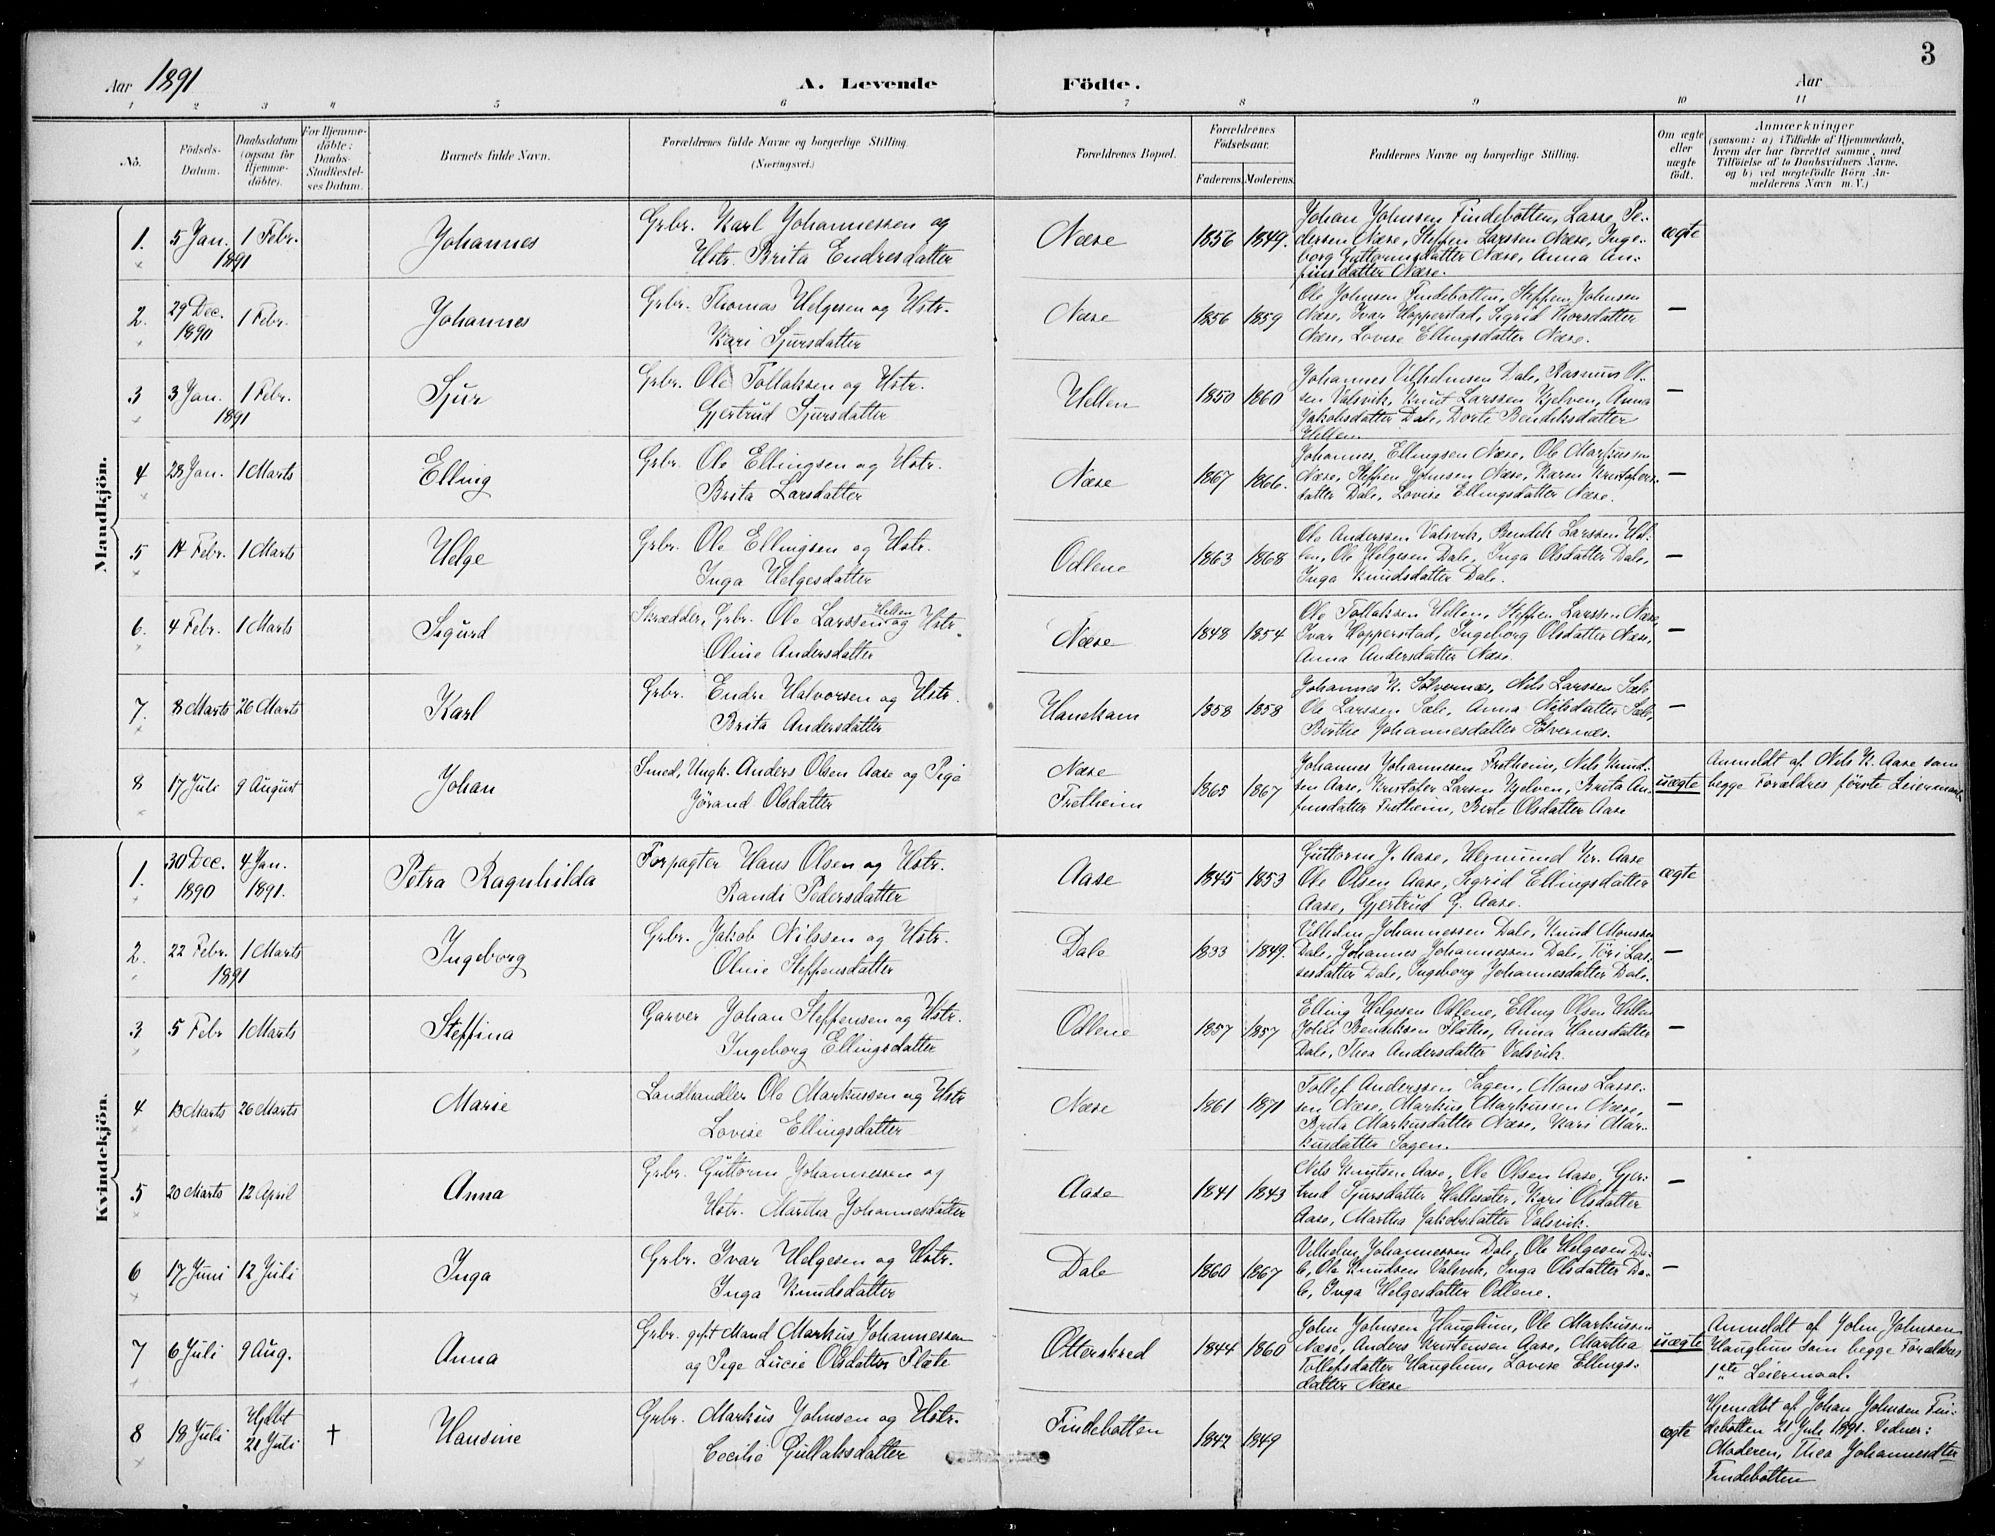 3
Aar 1891
A. Levende Födte.
Aar
1 2 3 4 5 6 7 8 9 10 11
No.
Födsels-
Datum.
Daabsdatum
(ogsaa for
Hjemme-
döbte).
For Hjemme-
döbte:
Daabs-
Stadfæstel-
ses Datum.
Barnets fulde Navn.
Forældrenes fulde Navne og borgerlige Stilling.
(Næringsvei.)
Forældrenes Bopæl.
Forældrenes
Födselsaar.
Faderens. Moderens.
Faddernes Navne og borgerlige Stilling.
Om ægte
eller
uægte
födt.
Anmærkninger
(saasom: a) i Tilfælde af Hjemmedaab,
hvem der har forrettet samme, med
Tilföielse af to Daabsvidners Navne,
og b) ved uægtefödte Börn An-
melderens Navn m. V.)
Mandkjön.
1. 5 Jan. 1891 1 Febr. Johannes
Grbr. Karl Johannessen og
Hstr. Brita Endresdatter
Næse 1856 1849.
Johan Johnsen Findebotten, Lasse Pe-
dersen Næse, Steffen Larssen Næse, Inge-
borg Guttormsdatter Næse, Anna An-
finsdatter Næse.
ægte
2. 29 Dec. 1890 1 Febr. Johannes
Grbr. Thomas Helgesen og Hstr.
Kari Sjursdatter
Næse 1856 1859
Ole Johnsen Findebotten, Steffen Johnsen
Næse, Ivar Hopperstad, Sigrid Thorsdatter
Næse, Lovise Ellingsdatter Næse.
—
3 3 Jan. 1891 1 Febr. Sjur
Grbr. Ole Tollaksen og Hstr.
Gjertrud Sjursdatter
Hellen 1850 1860
Johannes Vilhelmsen Dale, Rasmus Ol-
sen Valsvik, Knut Larssen Kjelven, Anna
Jakobsdatter Dale, Dorte Bendiksdatter
Hellen
—
4 28 Jan. 1 Marts Elling
Grbr. Ole Ellingsen og Hstr.
Brita Larsdatter
Næse 1867 1866.
Johannes Ellingsen Næse, Ole Markussen
Næse, Steffen Johnsen Næse, Karen Kristofers-
datter Dale, Lovise Ellingsdatter Næse.
—
5 14 Febr. 1 Marts Helge
Grbr. Ole Ellingsen og Hstr.
Inga Helgesdatter
Odlene 1863 1868
Ole Anderssen Valsvik, Bendik Larssen Hel-
len, Ole Helgesen Dale, Inga Olsdatter Dale,
Inga Knudsdatter Dale.
—
6. 4 Febr. 1 Marts Sigurd
Skrædder, Grbr. Ole Larssen Hellen og Hstr.
Oline Andersdatter
Næse 1848 1854
Ole Tollaksen Hellen, Steffen Larssen Næse,
Ivar Hopperstad, Ingeborg Olsdatter Næse,
Anna Andersdatter Næse.
—
7. 8 Marts 26 Marts Karl
Grbr. Endre Halvorsen og Hstr.
Brita Andersdatter
Hanekam 1858 1858
Johannes K. Sølvernes, Nils Larssen Sæle
Ole Larssen Sæle, Anna Nilsdatter Sæle,
Birthe Johannesdatter Sølvernæs.
—
8 17 Juli 9 August Johan
Smed, Ungk. Anders Olsen Aase og Pige
Jörand Olsdatter
Næse
Fretheim
1865 1867
Johannes Johannessen Fretheim, Nils Knud-
sen Aase, Kristofer Larsen Kjelven, Brita An-
finsdatter Fretheim, Birte Olsdatter Aase
uægte
Anmeldt af Nils K. Aase som
begge Forældres förste Leiermaal
Kvindekjön.
1. 30 Dec. 1890 4 Jan. 1891. Petra Ragnhilda
Forpagter Hans Olsen og Hstr.
Randi Pedersdatter
Aase 1845 1853
Guttorm J. Aase, Hermund Kr. Aase
Ole Olsen Aase, Sigrid Ellingsdatter
Aase, Gjertrud G. Aase.
ægte
2. 22 Febr. 1891 1 Marts Ingeborg
Grbr. Jakob Nilssen og Hstr.
Oline Steffensdatter
Dale 1833 1849.
Vilhelm Johannessen Dale, Knud Monssen
Dale, Johannes Johannessen Dale, Töri Las-
sesdatter Dale, Ingeborg Johannesdatter Dale.
—
3 5 Febr 1 Marts Steffina
Garver Johan Steffensen og Hstr.
Ingeborg Ellingsdatter
Odlene 1857 1857
Elling Helgesen Odlene, Elling Olsen Hellen
John Bendiksen Flæthe, Anna Hansdatter
Dale, Thea Andersdatter Valsvik.
—
4 13 Marts 26 Marts Marie
Landhandler Ole Markussen og Hstr
Lovise Ellingsdatter
Næse 1861 1871
Tollef Anderssen Sagen, Mons Lasse-
sen Næse, Markus Markussen Næse,
Brita Markusdatter Næse, Kari Mar-
kusdatter Sagen.
—
5 20 Marts 12 April Anna
Grbr. Guttorm Johannessen og
Hstr. Martha Johannesdatter
Aase 1841 1843
Nils Knutsen Aase, Ole Olsen Aase, Gjer-
trud Sjursdatter Hallesæter, Kari Olsdatter
Aase, Martha Jakobsdatter Valsvik.
—
6 17 Juni 12 Juli Inga
Grbr. Ivar Helgesen og Hstr.
Inga Knudsdatter
Dale 1860 1867
Vilhelm Johannessen Dale, Ole Helgesen Da-
le, Ole Knudsen Valsvik, Inga Olsdatter Da-
le, Inga Helgesdatter Odlene.
—
7 6 Juli 9 Aug. Anna
Grbr. gift Mand Markus Johannessen
og Pige Lucie Olsdatter Flæte
Otterskred 1844 1860
John Johnsen Hauglum, Ole Markussen
Næse, Anders Kristensen Aase, Martha
Tollefsdatter Hauglum, Lovise Ellings-
datter Næse
uægte
Anmeldt af John Johnsen
Hauglum som begge Forældres
1ste Leiermaal.
8 18 Juli Hjdbt 21 Juli † Hansine
Grbr. Markus Johnsen og Hstr.
Cecilie Gullaksdatter
Findebotten 1842 1849
ægte
Hjemdbt af Johan Johnsen Fin-
debotten 21 Juli 1891. Vidner:
Moderen, Thea Johannesdter
Findebotten